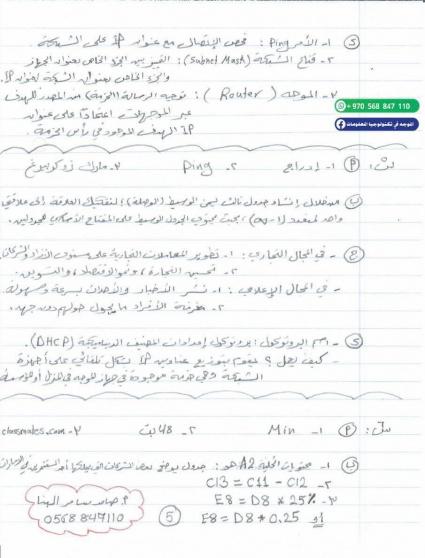 (د) ١- الأمر Ping : فحص الإتصال مع عنوان IP على الشبكة.
٢- قناع الشبكة (Subnet Mask) : التمييز بين الجزء الخاص بعنوان الجهاز
والجزء الخاص بعنوان الشبكة لعنوان IP
٣- الموجه (Router) : توجيه الرسالة (الحزمة) من المصدر للهدف
عبر الموجهات اعتماداً على عنوان
IP الهدف الموجود في رأس الحزمة.
+970 568 847 110
الموجه في تكنولوجيا المعلومات
(أ) ١- إدراج ٢- Ping ٣- مارك زوكربيرغ
(ب) من خلال إنشاء جدول ثالث يسمى الوسيط (الوصلة) لتفكيك العلاقة إلى علاقتي
واحد لمتعدد (∞-١) بحيث يحتوي الجدول الوسيط على المفتاح الأساسي للجدولين.
(ج) - في المجال التجاري : ١- تطوير المعاملات التجارية على مستوى الأفراد والشركات
٢- تحسين التجارة، ونمو الاقتصاد، والتسويق.
- في المجال الإعلامي : ١- نشر الأخبار والأحداث بسرعة وسهولة
٢- معرفة الأفراد ما يجول حولهم دون جهد.
(د) - اسم البروتوكول : بروتوكول إعدادات المضيف الديناميكية (DHCP).
- كيف يعمل ؟ يقوم بتوزيع عناوين IP بشكل تلقائي على أجهزة
الشبكة وهي خدمة موجودة في جهاز الموجه في المنزل أو المؤسسة
(أ) ١- Min ٢- 48 بت ٣- classmates.com
(ب) ١- محتويات الخلية A2 هو : جدول يوضح بعض الشركات
٢- C13 = C11 - C12
٣- E8 = D8 * 25%
أو E8 = D8 * 0.25
أ. حامد سامر البنا
0568847110
5